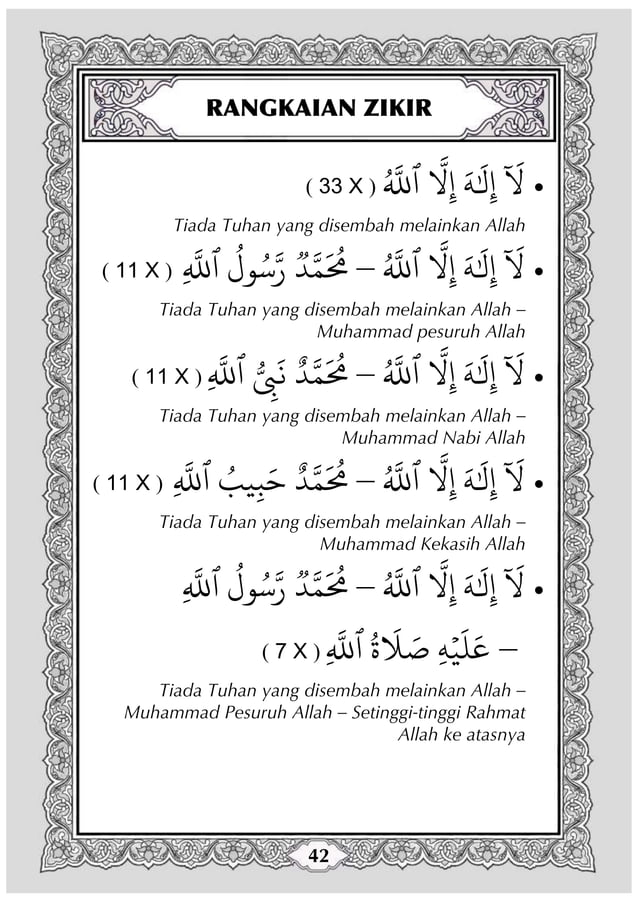 RANGKAIAN ZIKIR
• لَآ إِلَـٰهَ إِلَّا ٱللَّهُ ( 33 X )
Tiada Tuhan yang disembah melainkan Allah
• لَآ إِلَـٰهَ إِلَّا ٱللَّهُ – مُحَمَّدٌ رَّسُولُ ٱللَّهِ ( 11 X )
Tiada Tuhan yang disembah melainkan Allah –
Muhammad pesuruh Allah
• لَآ إِلَـٰهَ إِلَّا ٱللَّهُ – مُحَمَّدٌ نَبِىُّ ٱللَّهِ ( 11 X )
Tiada Tuhan yang disembah melainkan Allah –
Muhammad Nabi Allah
• لَآ إِلَـٰهَ إِلَّا ٱللَّهُ – مُحَمَّدٌ حَبِيبُ ٱللَّهِ ( 11 X )
Tiada Tuhan yang disembah melainkan Allah –
Muhammad Kekasih Allah
• لَآ إِلَـٰهَ إِلَّا ٱللَّهُ – مُحَمَّدٌ رَّسُولُ ٱللَّهِ
– عَلَيْهِ صَلَاةُ ٱللَّهِ ( 7 X )
Tiada Tuhan yang disembah melainkan Allah –
Muhammad Pesuruh Allah – Setinggi-tinggi Rahmat
Allah ke atasnya
42